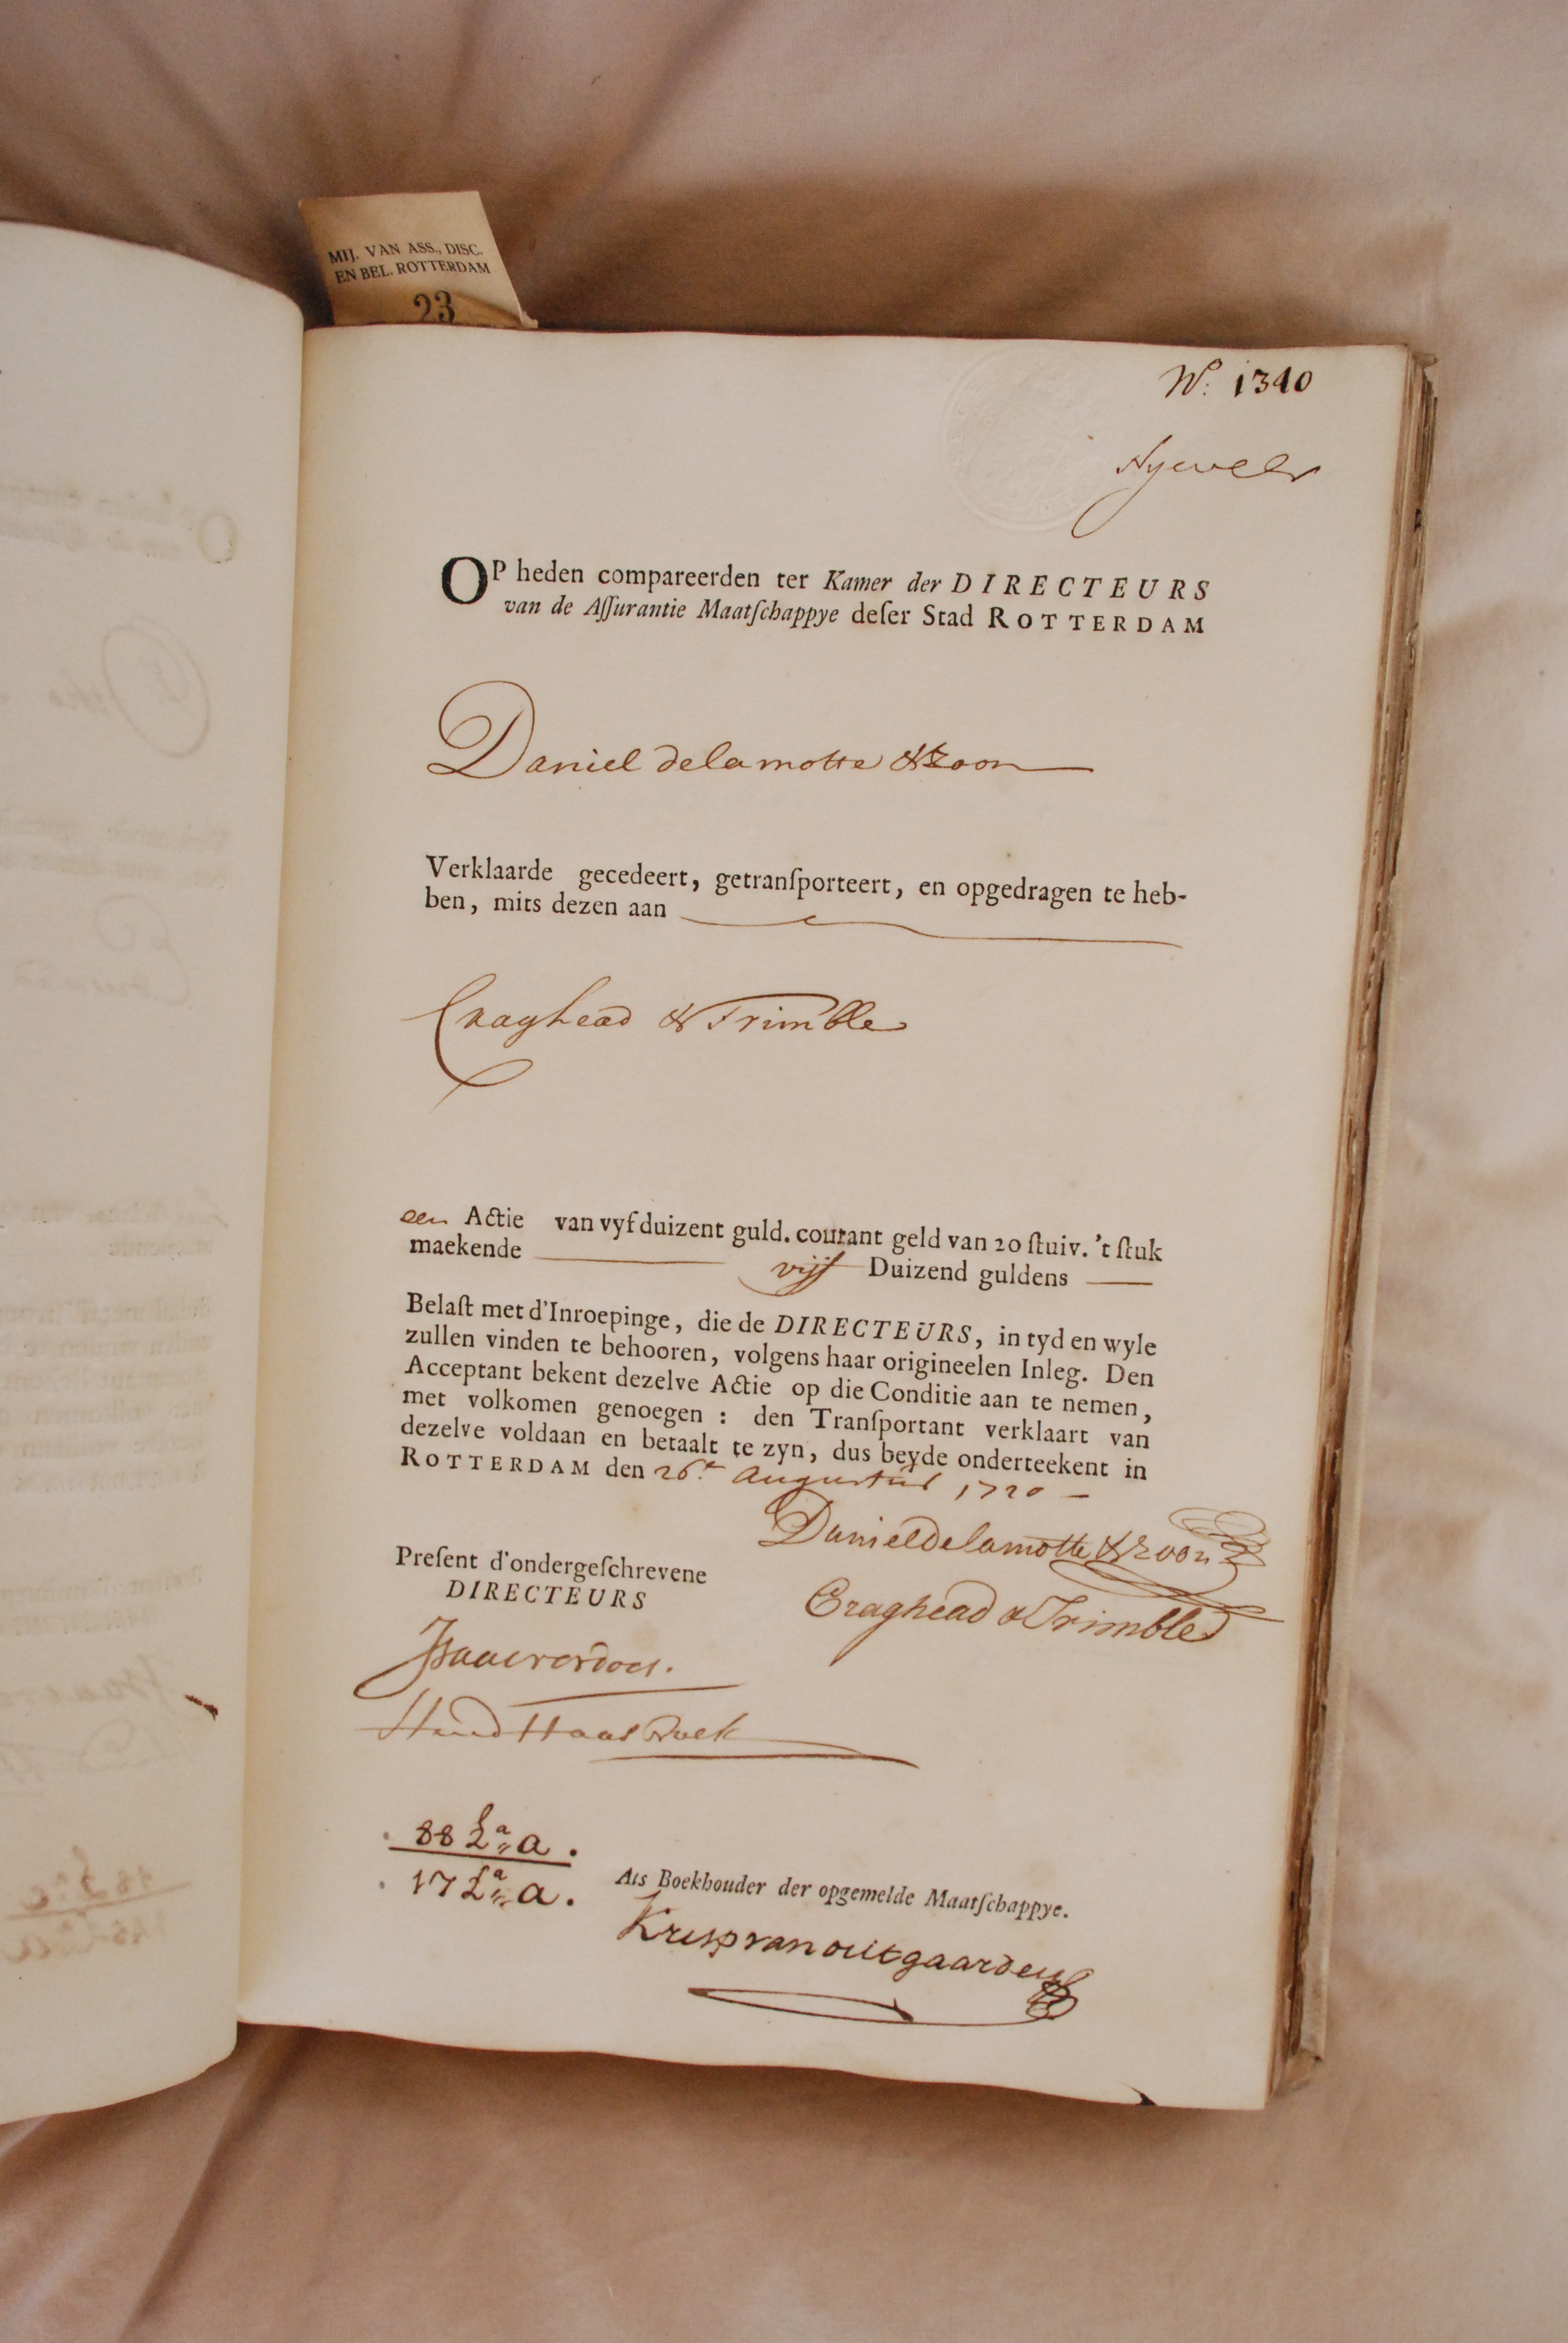 MIJ. VAN ASS., DISC.
EN BEL. ROTTERDAM
23
No: 1340
OP heden compareerden ter Kamer der DIRECTEURS
van de Aſſurantie Maatſchappye deſer Stad ROTTERDAM
Daniel delamotte & Zoon
Verklaarde gecedeert, getranſporteert, en opgedragen te heb-
ben, mits dezen aan
Craghead & Trimble
een Actie van vyf duizent guld. courant geld van 20 ſtuiv. 't ſtuk
maekende vijf Duizend guldens
Belaſt met d'Inroepinge, die de DIRECTEURS, in tyd en wyle
zullen vinden te behooren, volgens haar origineelen Inleg. Den
Acceptant bekent dezelve Actie op die Conditie aan te nemen,
met volkomen genoegen : den Tranſportant verklaart van
dezelve voldaan en betaalt te zyn, dus beyde onderteekent in
ROTTERDAM den 26e Augustus 1720
Danieldelamotte & Zoon
Preſent d'ondergeſchrevene
DIRECTEURS
Craghead & Trimble
88 La a.
17 La a.
Als Boekhouder der opgemelde Maatſchappye.